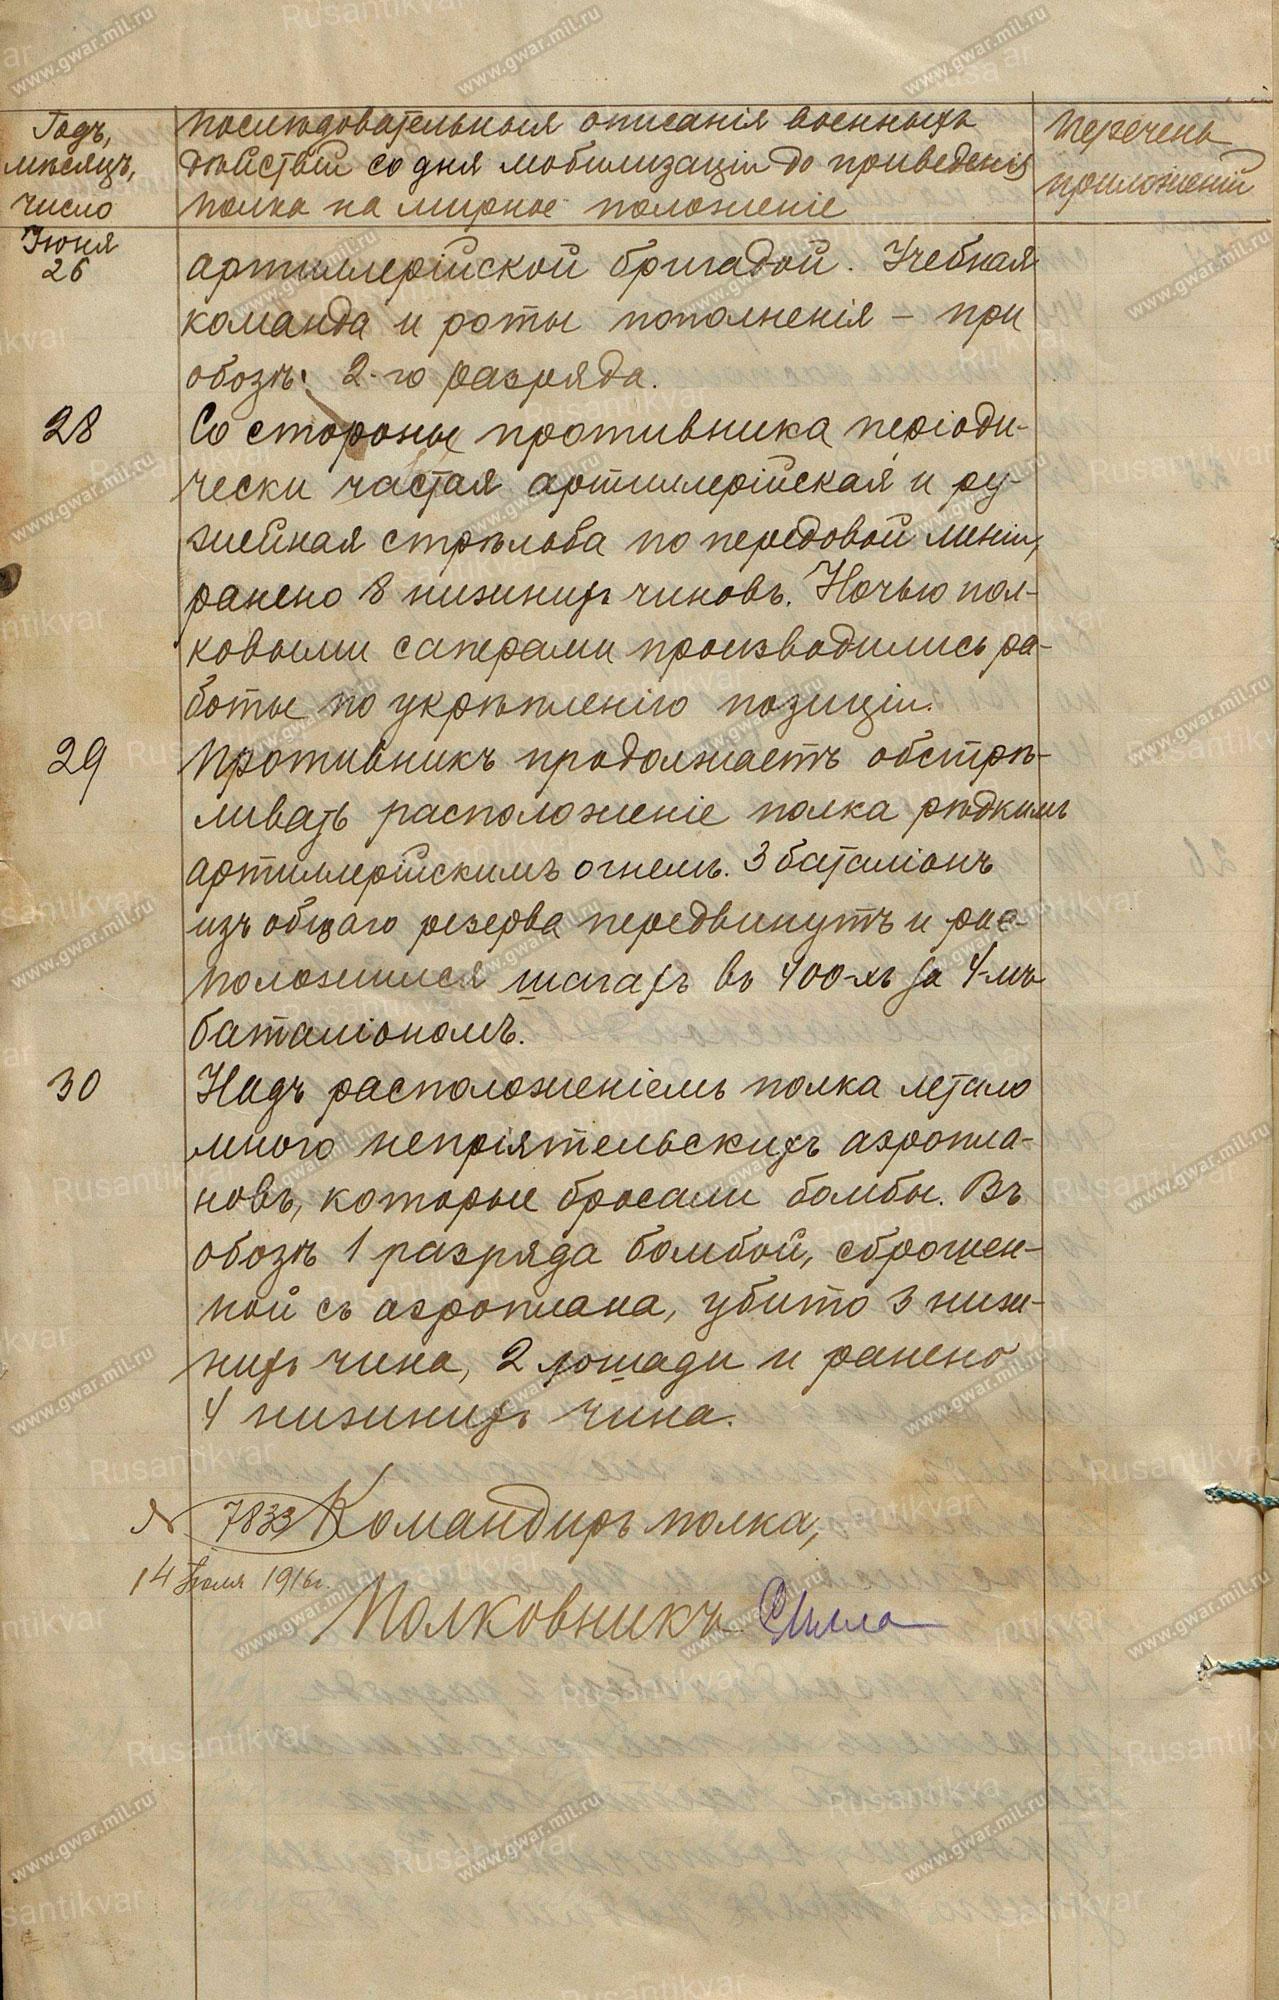 Годъ,
мѣсяцъ,
число
Послѣдовательныя описанія военныхъ
дѣйствій со дня мобилизаціи до приведенія
полка на мирное положеніе
Перечень
приложеній
Іюня
26
артиллерійской бригадой. Учебная
команда и роты пополненія – при
обозѣ 2-го разряда.
28
Со стороны противника періоди-
чески частая артиллерійская и ру-
жейная стрѣльба по передовой линіи,
ранено 8 нижнихъ чиновъ. Ночью пол-
ковыми саперами производились ра-
боты по укрѣпленію позиціи.
29
Противникъ продолжаетъ обстрѣ-
ливать расположеніе полка рѣдкимъ
артиллерійскимъ огнемъ. 3 баталіонъ
изъ общаго резерва передвинутъ и рас-
положился шагахъ въ 400-хъ за 4-мъ
баталіономъ.
30
Надъ расположеніемъ полка летало
много непріятельскихъ аэропла-
новъ, которые бросали бомбы. Въ
обозѣ 1 разряда бомбой, сброшен-
ной съ аэроплана, убито 3 ниж-
нихъ чина, 2 лошади и ранено
4 нижнихъ чина.
№ 7833
Командиръ полка,
14 Іюля 1916г.
Полковникъ
www.gwar.mil.ru
Rusantikvar